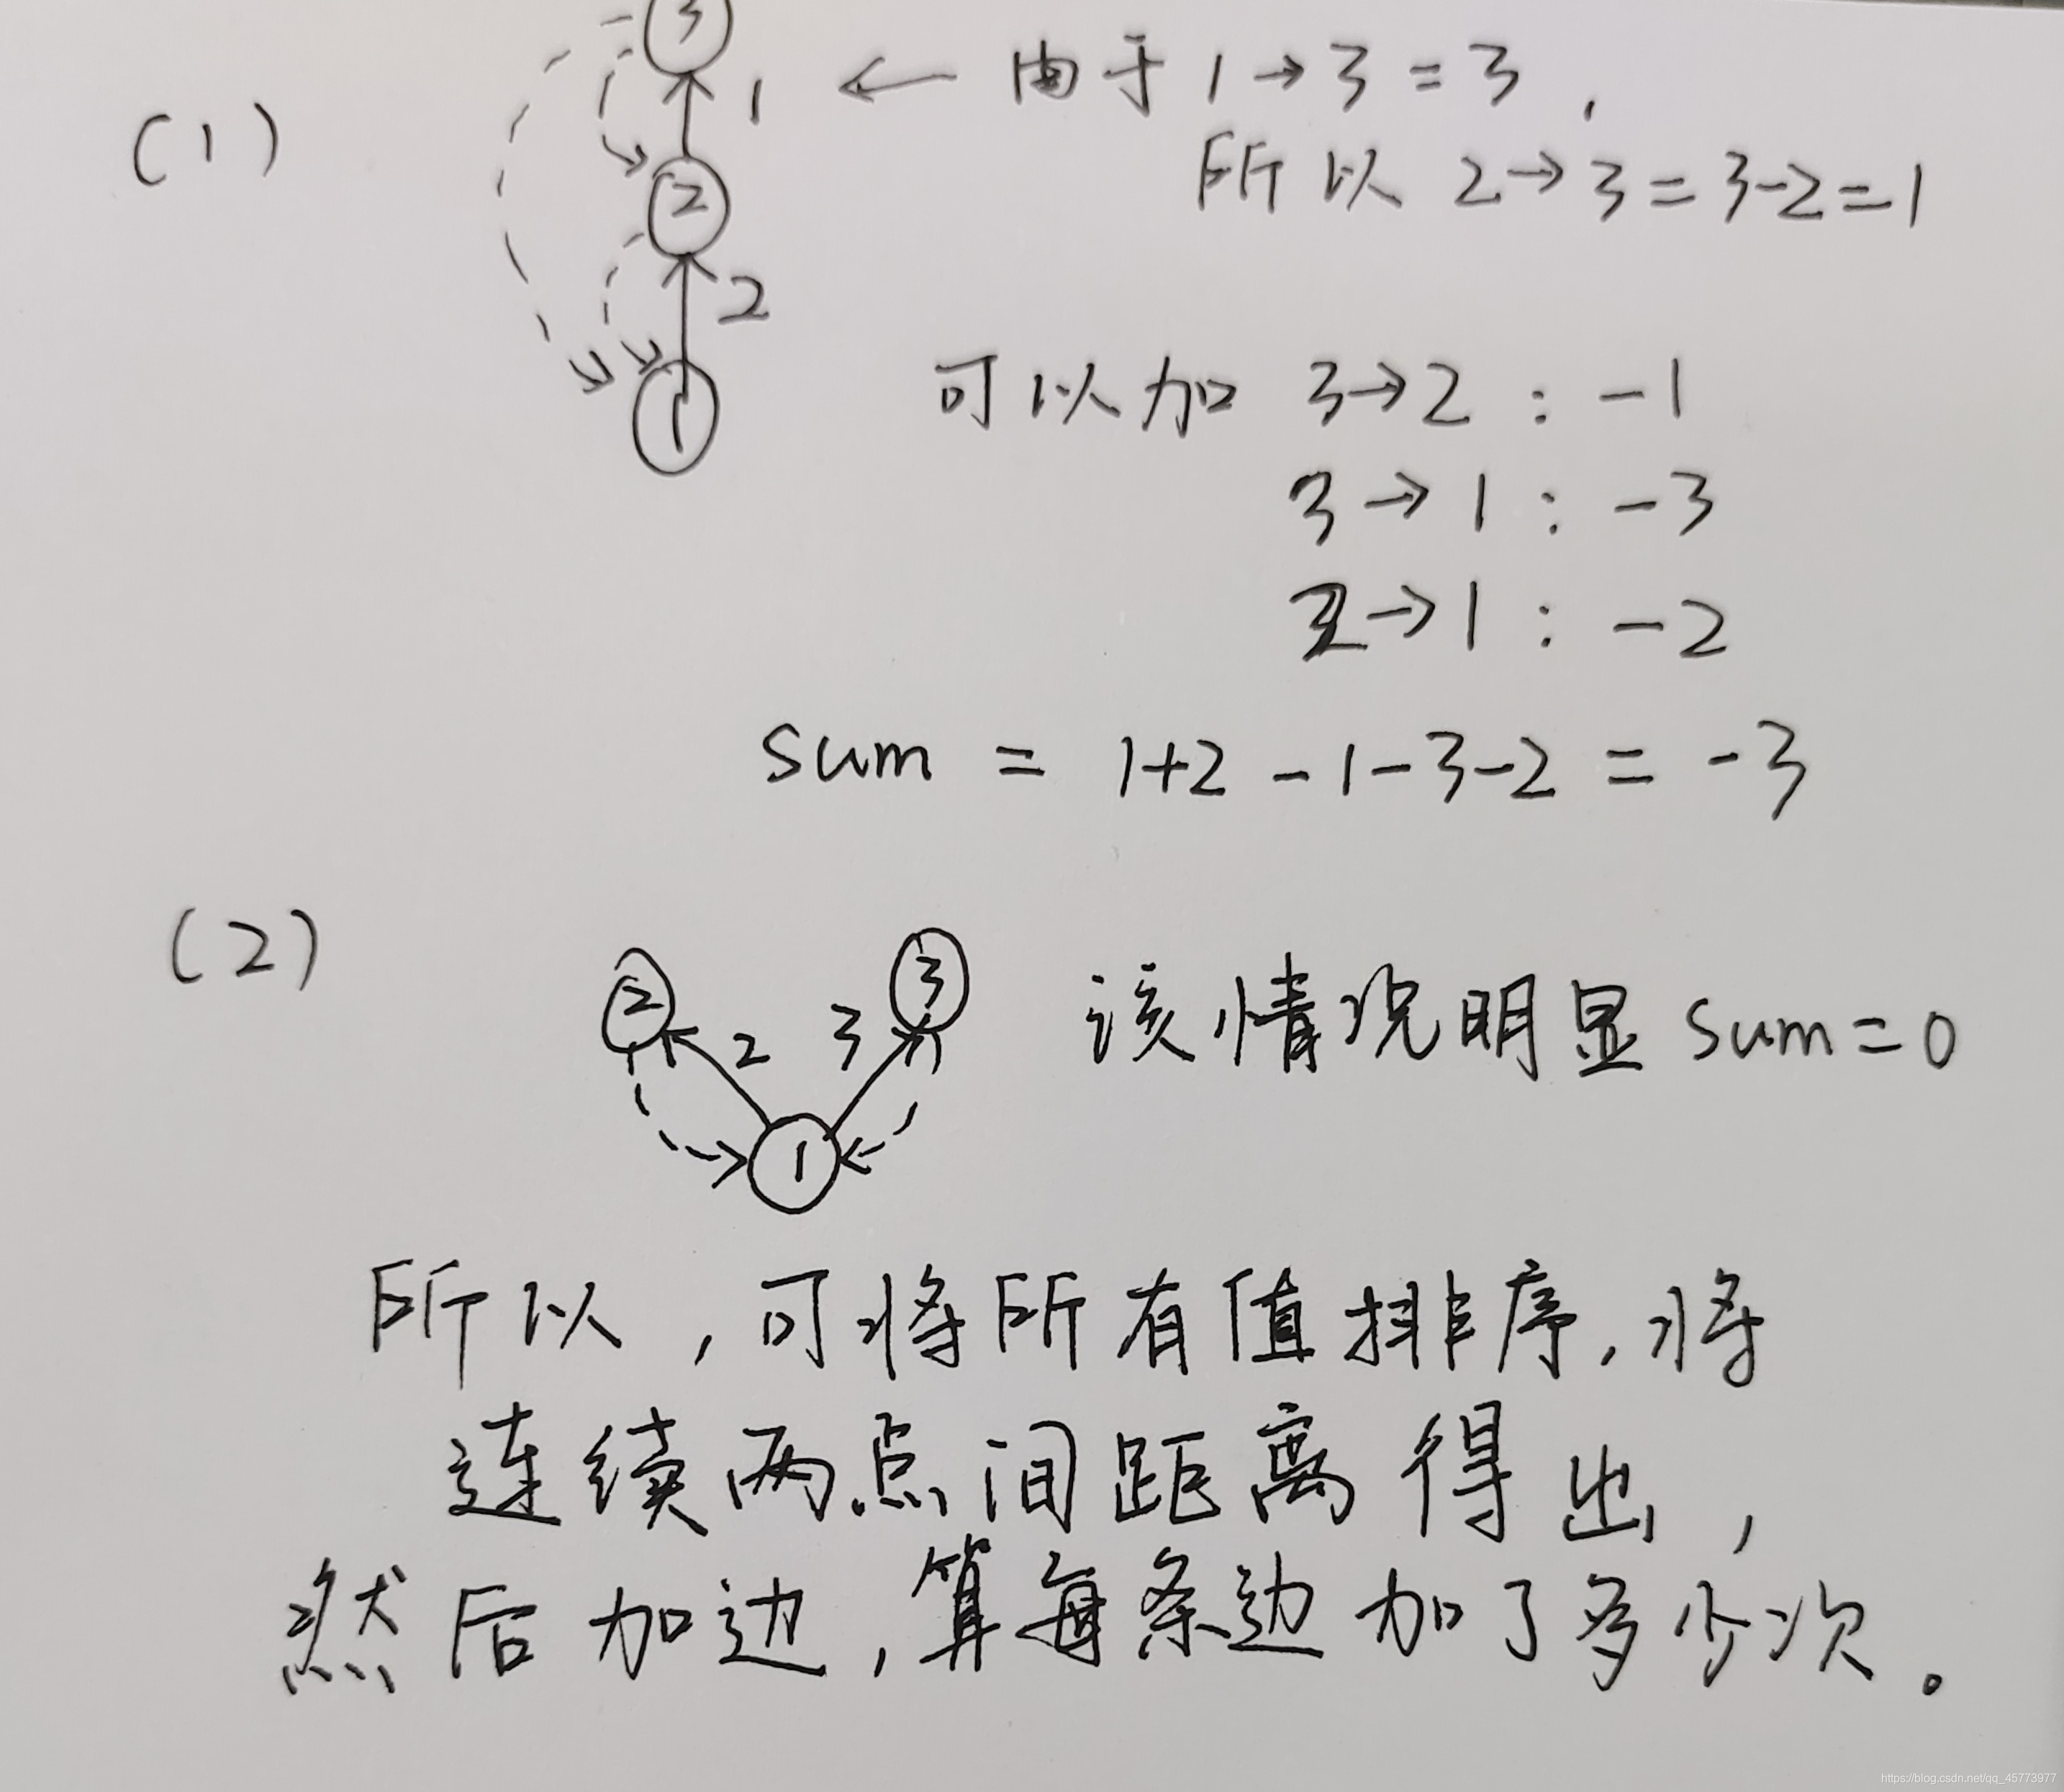 3
(1)
1 ← 由于 1→3=3,
所以 2→3=3-2=1
2
2
1
可以加 3→2 : -1
3→1 : -3
2→1 : -2
sum = 1+2-1-3-2 = -3
(2)
2 2 3 3 该情况明显 sum=0
1
所以,可将所有值排序,将
连续两点间距离得出,
然后加边,算每条边加了多少次。
https://blog.csdn.net/qq_45773977